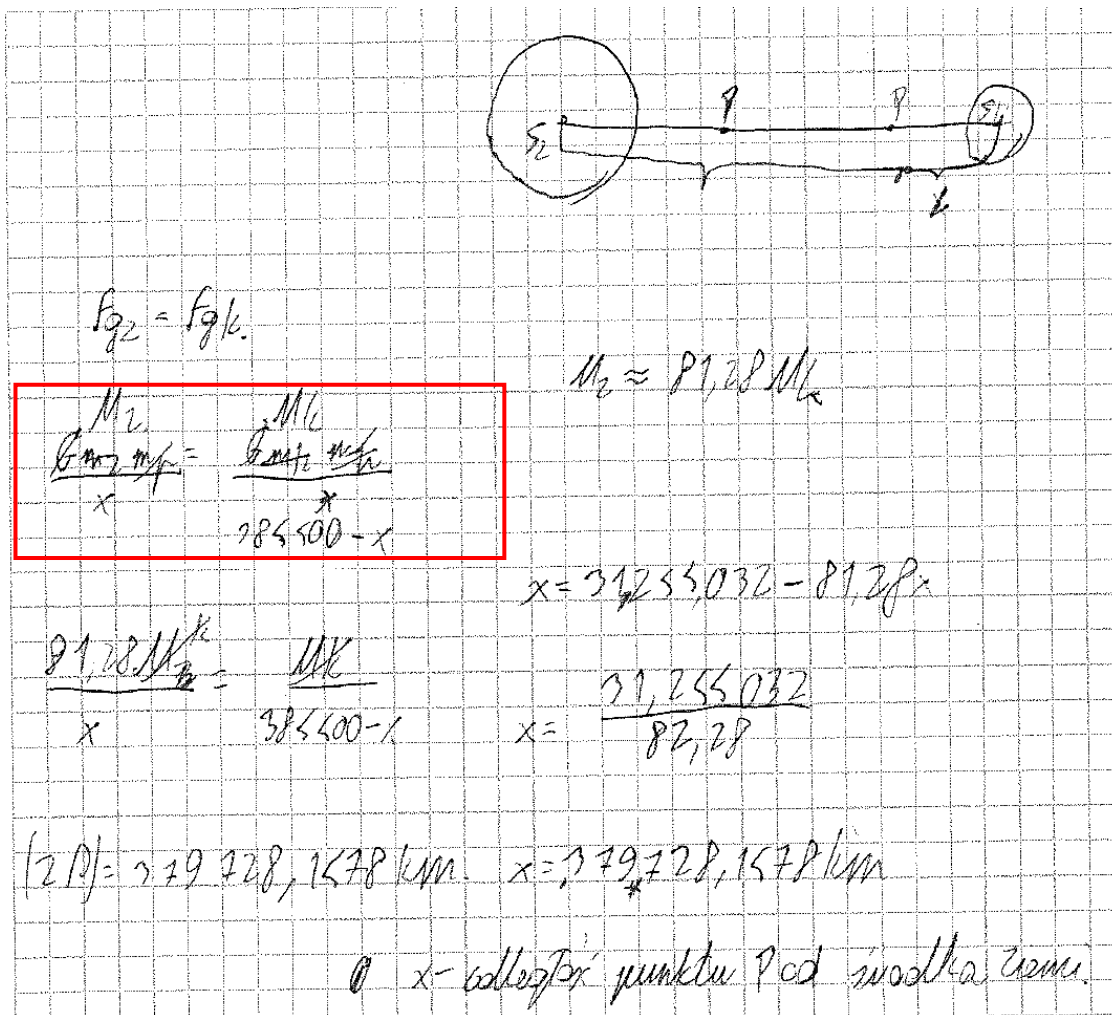 P P
Sz Sk
Fgz = Fgk.
Mz ≈ 81,28 Mk
Mz Mk
G mz mp = G mk mp
x x
384400 - x
x = 31,244,032 - 81,28x
81,28 Mk = Mk
x 384400 - x
x = 31,244032
82,28
|ZP| = 379 728,1478 km. x = 379,728,1478 km
x - odległość punktu P od środka ziemi.